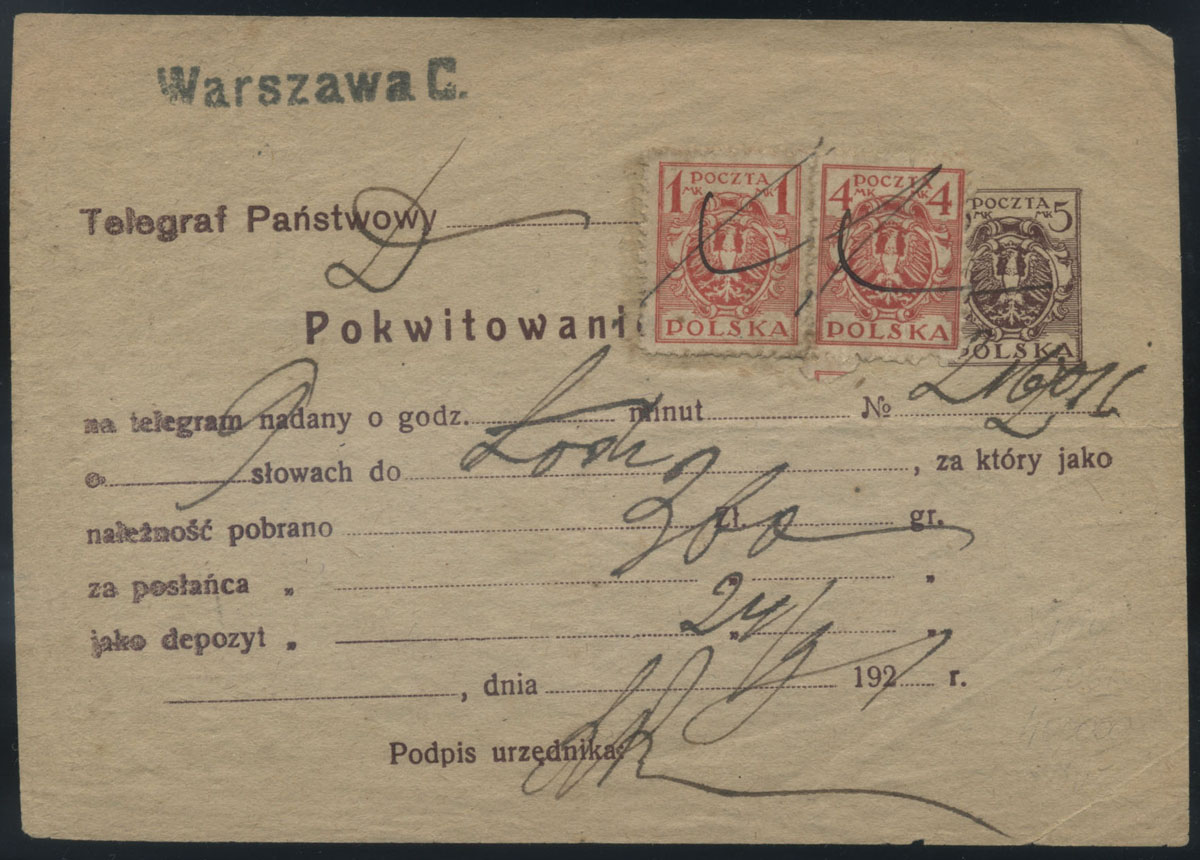 Warszawa C.
1 POCZTA 1
MK MK
POLSKA
4 POCZTA 4
MK MK
POLSKA
POCZTA 5
MK MK
POLSKA
Telegraf Państwowy
Pokwitowani
na telegram nadany o godz. minut №
9 słowach do Łodzi, za który jako
należność pobrano zł. gr.
za posłańca „ „ „
jako depozyt „ „ „
, dnia 24/9 192 r.
Podpis urzędnika: